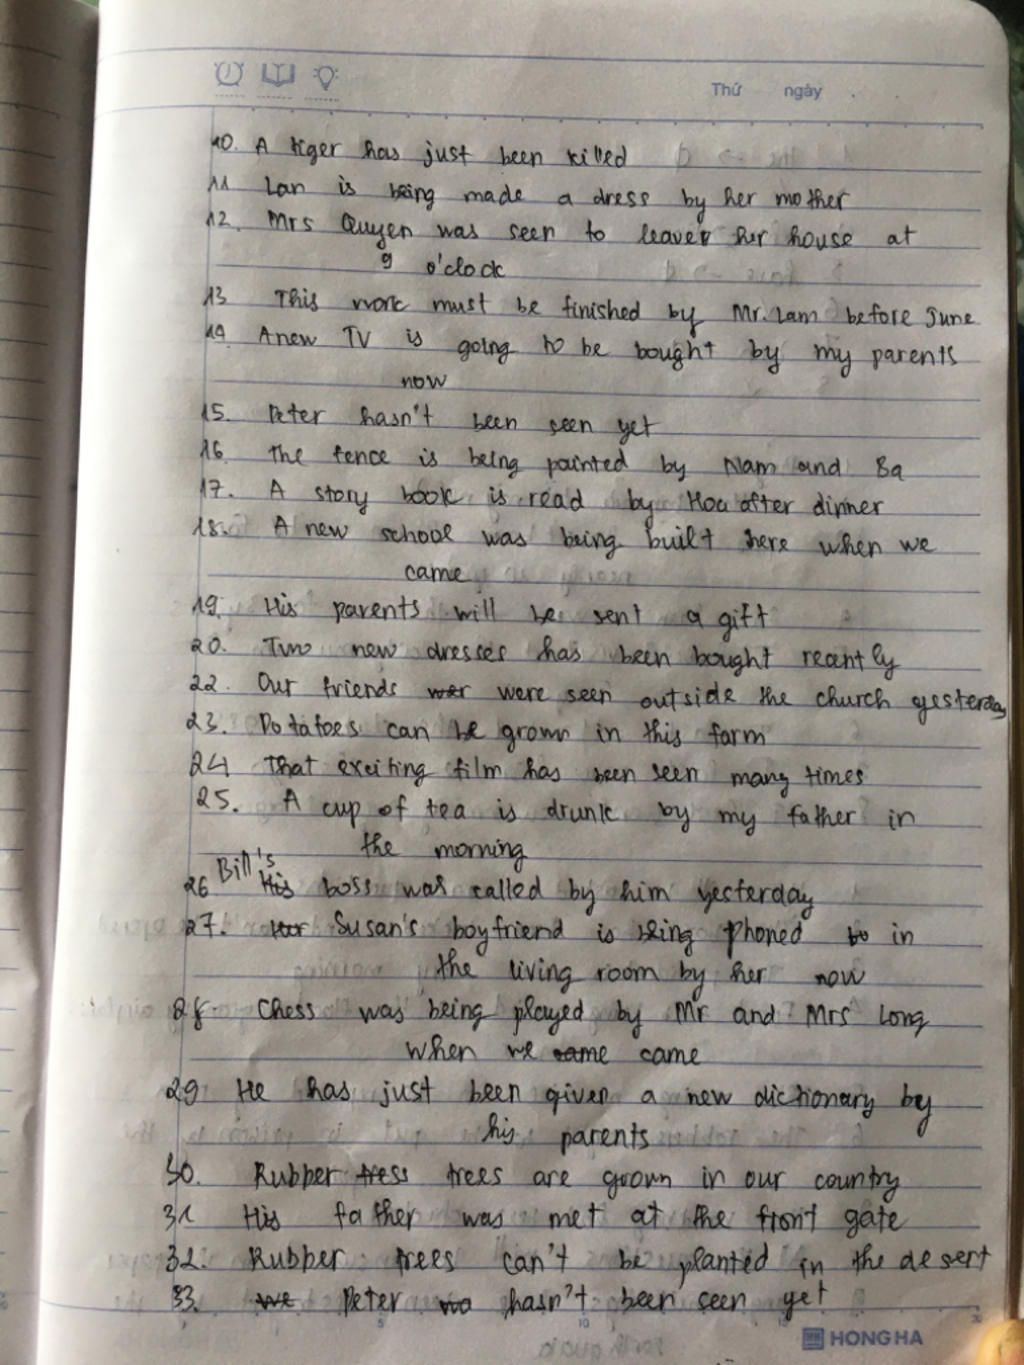 Thứ ngày
10. A tiger has just been killed
11 Lan is being made a dress by her mother
12. Mrs Quyen was seen to leaver her house at
9 o'clock
13 This work must be finished by Mr. Lam before June
14 A new TV is going to be bought by my parents
now
15. Peter hasn't been seen yet
16. The fence is being painted by Nam and Ba
17. A story book is read by Hoa after dinner
18. A new school was being built here when we
came
19. His parents will be sent a gift
20. Two new dresses has been bought recently
22. Our friends wer were seen outside the church yesterday
23. Potatoes can be grown in this farm
24 That exciting film has been seen many times
25. A cup of tea is drunk by my father in
the morning
26 Bill's His boss was called by him yesterday
27. Her Susan's boyfriend is being phoned to in
the living room by her now
28. Chess was being played by Mr and Mrs Long
when we came came
29 He has just been given a new dictionary by
his parents
30. Rubber tress trees are grown in our country
31 His father was met at the front gate
32. Rubber trees can't be planted in the desert
33. We Peter wa hasn't been seen yet
HONG HA